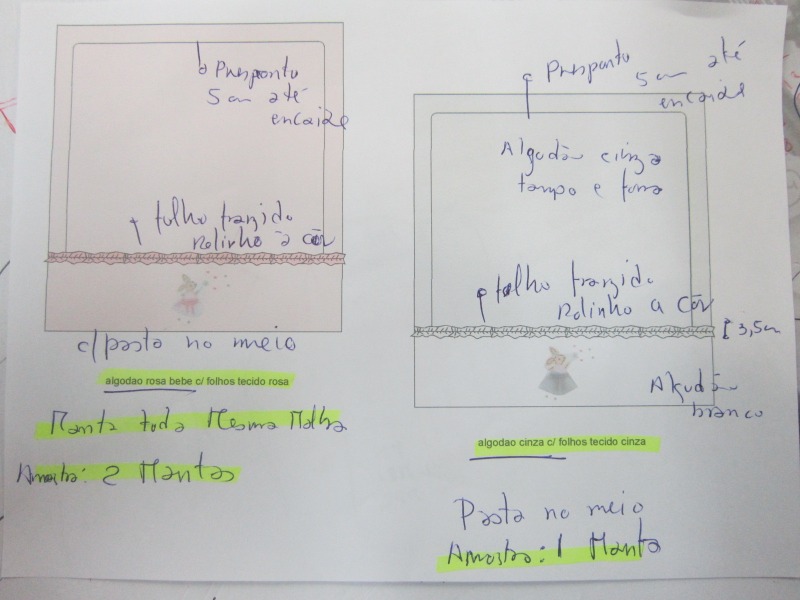 Pesponto
5 cm até
encaixe
folho franzido
Rolinho à côr
c/ pasta no meio
algodao rosa bebe c/ folhos tecido rosa
Manta toda Mesma Malha
Amostra: 2 Mantas
Pesponto
5 cm até
encaixe
Algodão cinza
tampo e forra
folho franzido
Rolinho a côr
3,5cm
Algodão
branco
algodao cinza c/ folhos tecido cinza
Pasta no meio
Amostra: 1 Manta